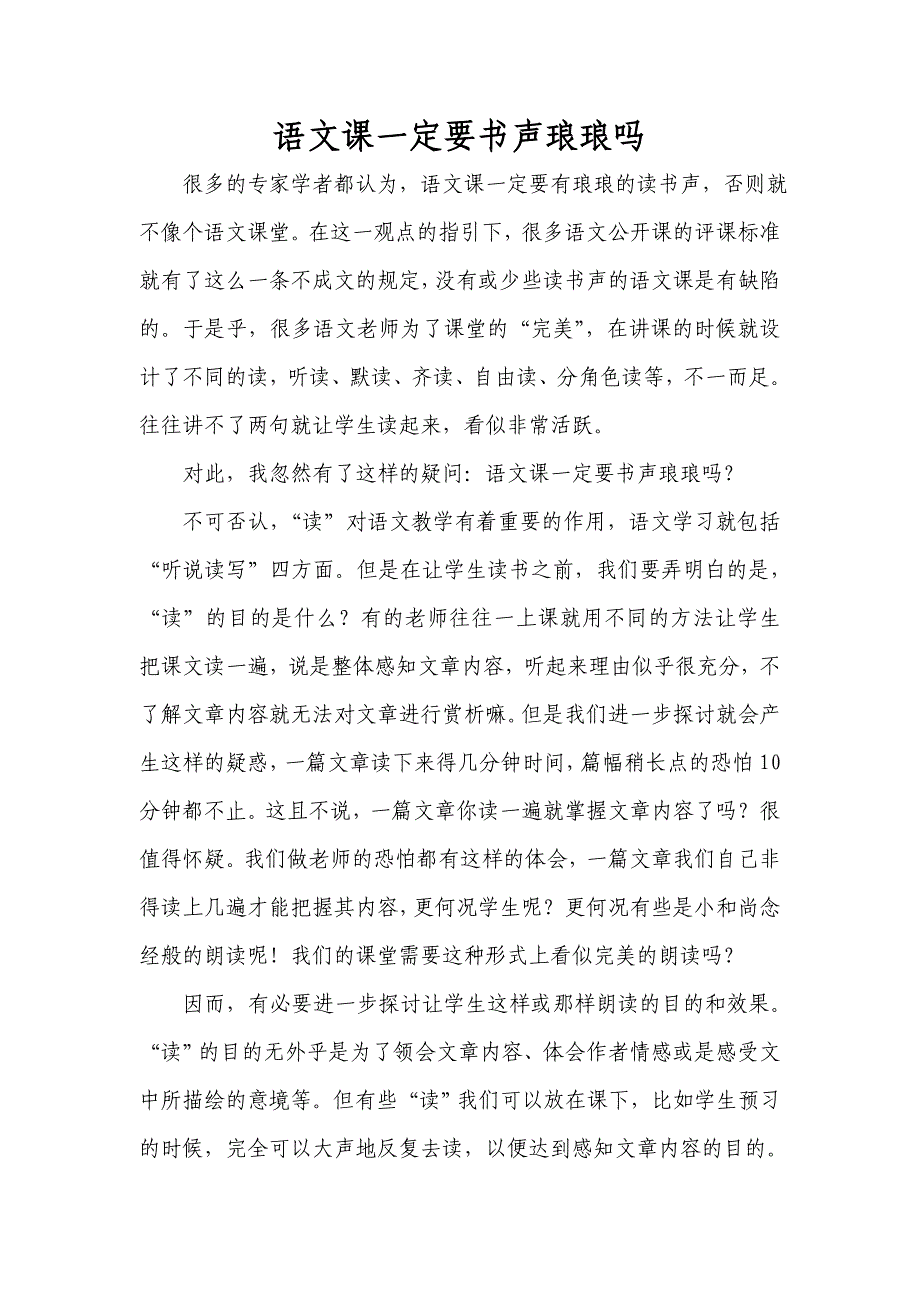 语文课一定要书声琅琅吗
很多的专家学者都认为，语文课一定要有琅琅的读书声，否则就
不像个语文课堂。在这一观点的指引下，很多语文公开课的评课标准
就有了这么一条不成文的规定，没有或少些读书声的语文课是有缺陷
的。于是乎，很多语文老师为了课堂的“完美”，在讲课的时候就设
计了不同的读，听读、默读、齐读、自由读、分角色读等，不一而足。
往往讲不了两句就让学生读起来，看似非常活跃。
对此，我忽然有了这样的疑问：语文课一定要书声琅琅吗？
不可否认，“读”对语文教学有着重要的作用，语文学习就包括
“听说读写”四方面。但是在让学生读书之前，我们要弄明白的是，
“读”的目的是什么？有的老师往往一上课就用不同的方法让学生
把课文读一遍，说是整体感知文章内容，听起来理由似乎很充分，不
了解文章内容就无法对文章进行赏析嘛。但是我们进一步探讨就会产
生这样的疑惑，一篇文章读下来得几分钟时间，篇幅稍长点的恐怕 10
分钟都不止。这且不说，一篇文章你读一遍就掌握文章内容了吗？很
值得怀疑。我们做老师的恐怕都有这样的体会，一篇文章我们自己非
得读上几遍才能把握其内容，更何况学生呢？更何况有些是小和尚念
经般的朗读呢！我们的课堂需要这种形式上看似完美的朗读吗？
因而，有必要进一步探讨让学生这样或那样朗读的目的和效果。
“读”的目的无外乎是为了领会文章内容、体会作者情感或是感受文
中所描绘的意境等。但有些“读”我们可以放在课下，比如学生预习
的时候，完全可以大声地反复去读，以便达到感知文章内容的目的。